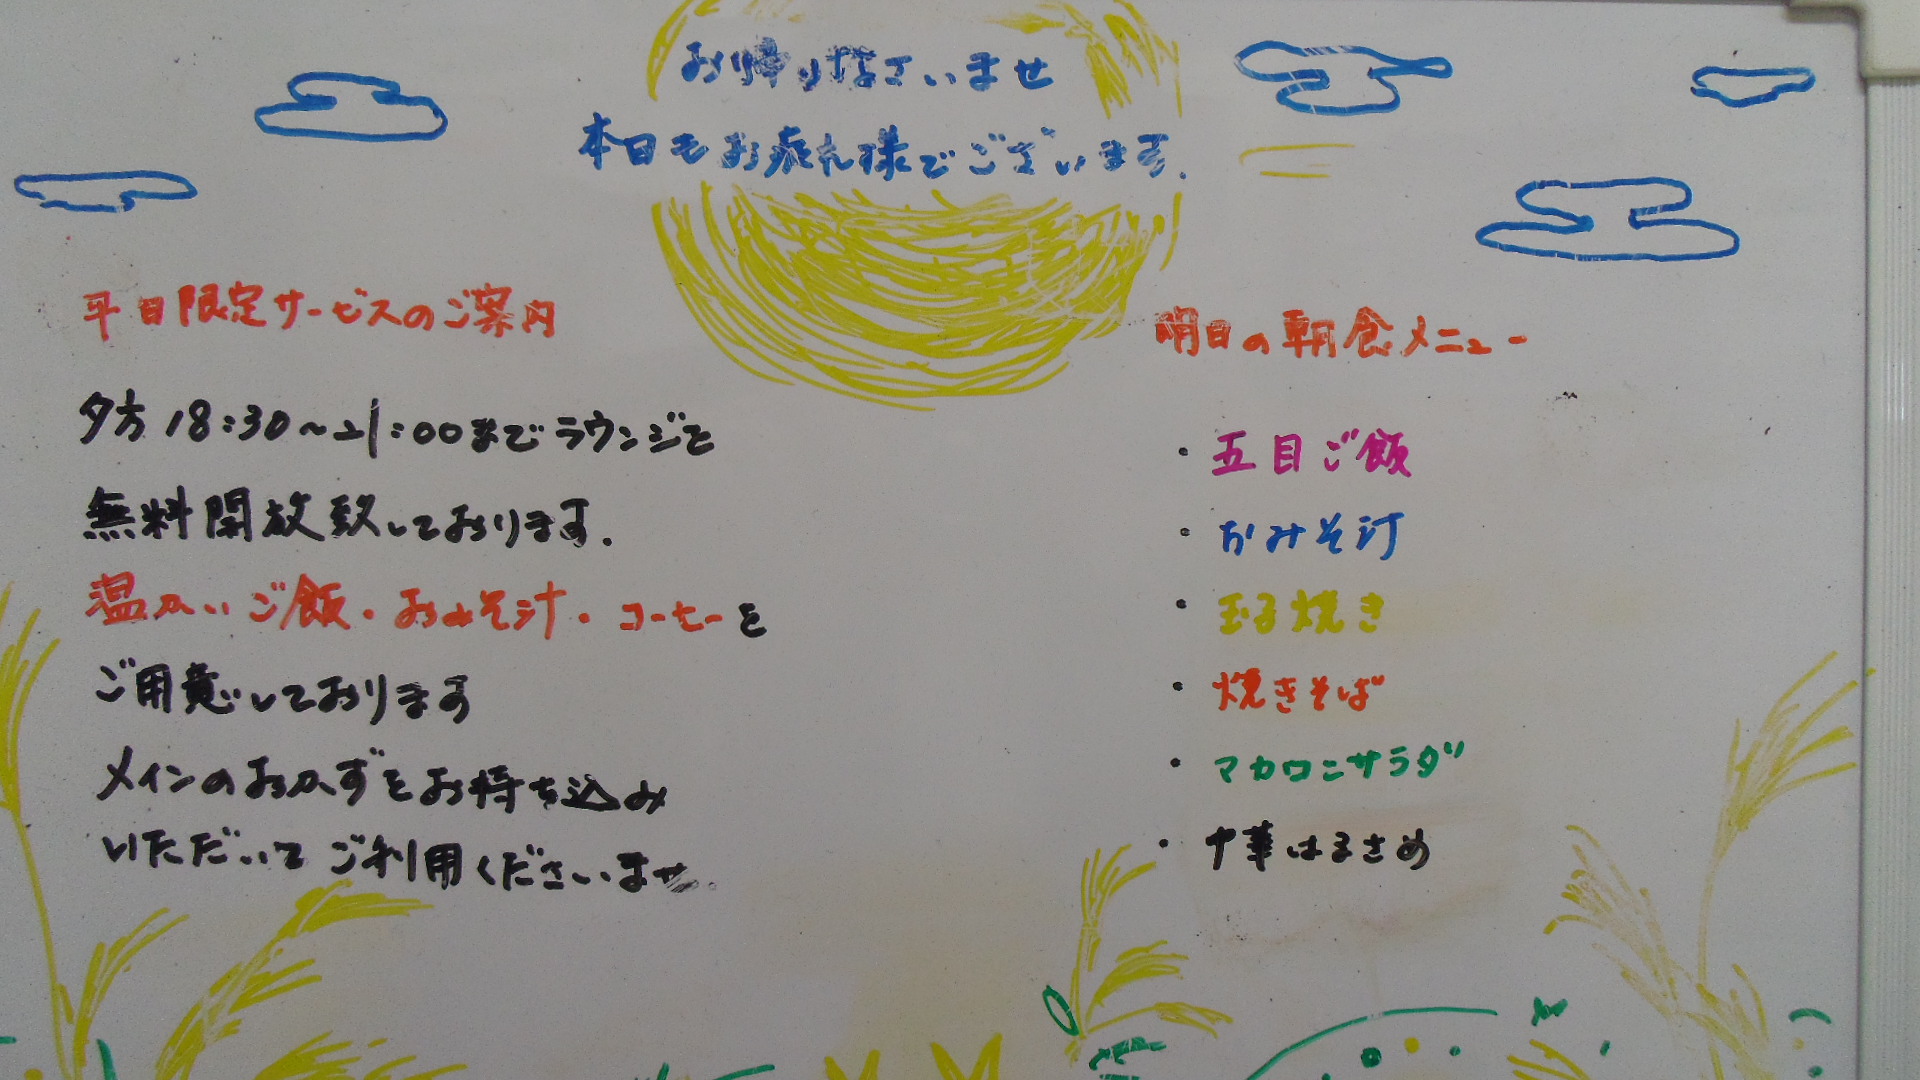 お帰りなさいませ
本日もお疲れ様でございます.
平日限定サービスのご案内
夕方 18:30～21:00までラウンジを
無料開放致しております.
温かいご飯・おみそ汁・コーヒーを
ご用意しております
メインのおかずをお持ち込み
いただいてご利用くださいませ.
明日の朝食メニュー
・五目ご飯
・おみそ汁
・玉子焼き
・焼きそば
・マカロニサラダ
・中華はるさめ